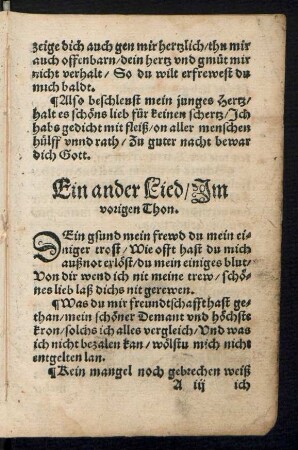 zeige dich auch gen mir hertzlich/thu mir
auch offenbarn/dein hertz vnd gmüt mir
nicht verhalt/ So du wilt erfrewest du
mich baldt.
¶Also beschleust mein junges Hertz/
halt es schöns lieb für keinen schertz/Ich
habs gedicht mit fleiß/on aller menschen
hülff vnnd rath/ Zu guter nacht bewar
dich Gott.
Ein ander Lied/Im
vorigen Thon.
DEin gsund mein frewd du mein ei-
niger trost/Wie offt hast du mich
außnot erlöst/du mein einiges blut/
Von dir wend ich nit meine trew/ schö-
nes lieb laß dichs nit gerewen.
¶Was du mir freundtschafft hast ge-
than/mein schöner Demant vnd höchste
kron/solchs ich alles vergleich/Vnd was
ich nicht bezalen kan/ wölstu mich nicht
entgelten lan.
¶Kein mangel noch gebrechen weiß
A iij ich